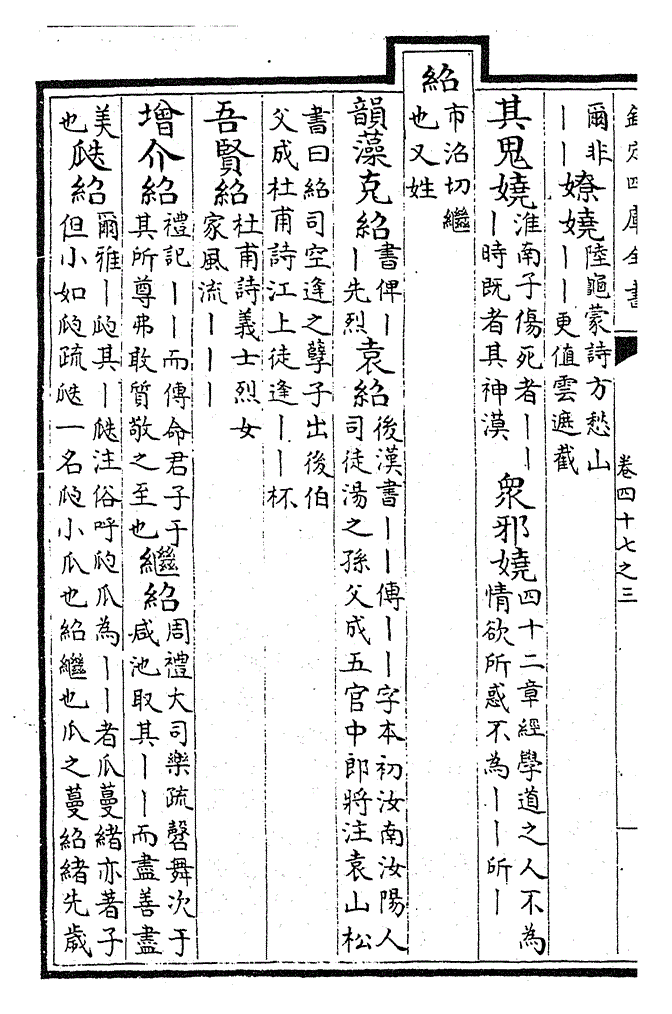 欽定四庫全書
卷四十七之三
爾非｜｜嫽嬈陸龜蒙詩方愁山｜｜更值雲遮截
其鬼嬈淮南子傷死者｜｜｜時既者其神漠 衆邪嬈四十二章經學道之人不為情欲所惑不為｜｜所｜
紹市沼切繼也又姓
韻藻克紹書俾｜｜先烈 袁紹後漢書｜｜傳｜｜字本初汝南汝陽人司徒湯之孫父成五官中郎將注袁山松
書曰紹司空逢之孽子出後伯父成杜甫詩江上徒逢｜｜杯
吾賢紹杜甫詩義士烈女家風流｜｜｜
增介紹禮記｜｜而傳命君子于其所尊弗敢質敬之至也 繼紹周禮大司樂疏磬舞次于咸池取其｜｜而盡善盡
美也 瓞紹爾雅｜瓝其｜瓞注俗呼瓝瓜為｜｜者瓜蔓緒亦著子但小如瓝疏瓞一名瓝小瓜也紹繼也瓜之蔓紹緒先歲